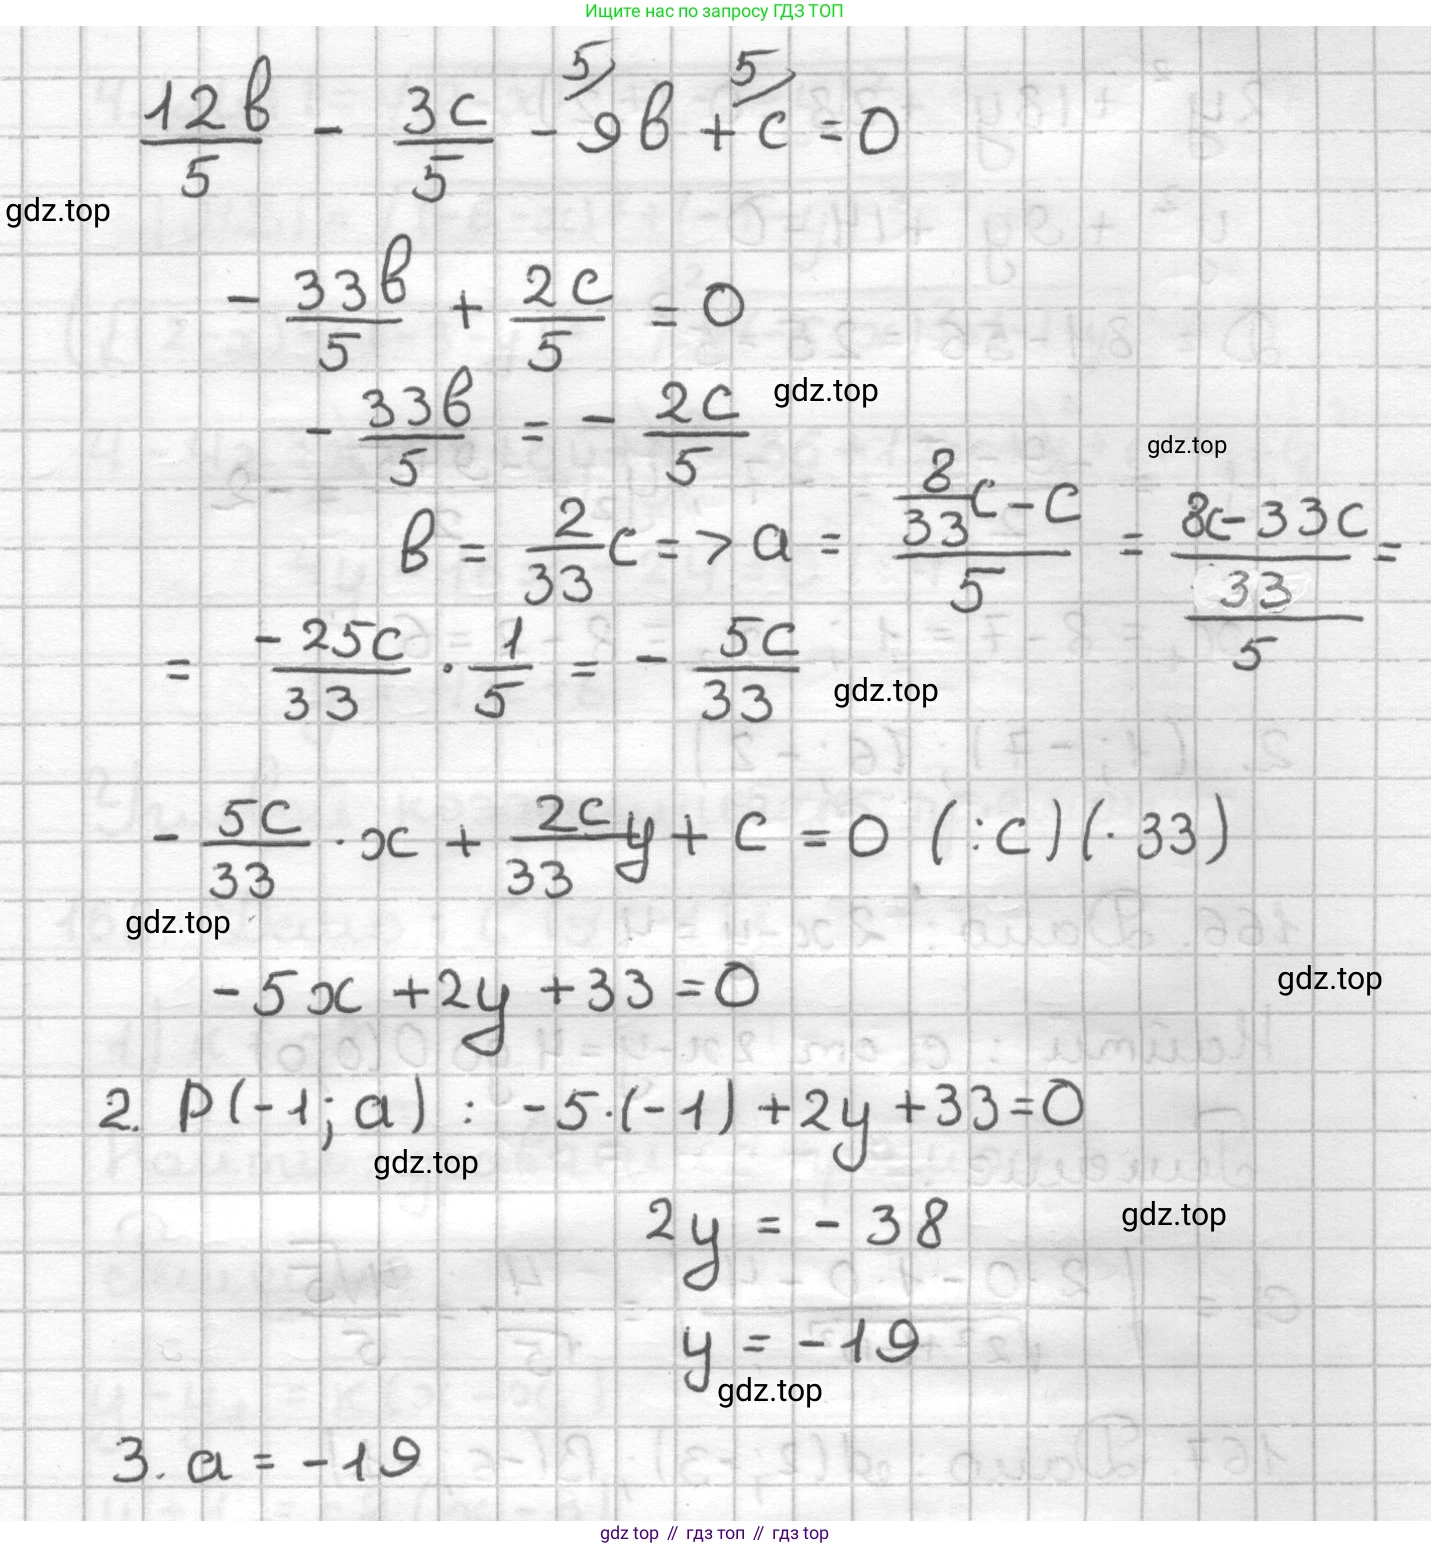 Ищите нас по запросу ГДЗ ТОП
12в/5 - 3c/5 - 9в 5/ + c 5/ = 0
gdz.top
- 33в/5 + 2c/5 = 0
- 33в/5 = - 2c/5
gdz.top
gdz.top
в = 2/33 c => a = (8/33 c - c)/5 = ((8c - 33c)/33)/5 =
= -25c/33 · 1/5 = - 5c/33
gdz.top
- 5c/33 · x + 2c/33 y + c = 0 (:c) (· 33)
gdz.top
gdz.top
-5x + 2y + 33 = 0
2. P(-1; a) : -5·(-1) + 2y + 33 = 0
gdz.top
2y = - 38
gdz.top
y = -19
gdz.top
3. a = -19
gdz top // гдз топ // gdz top